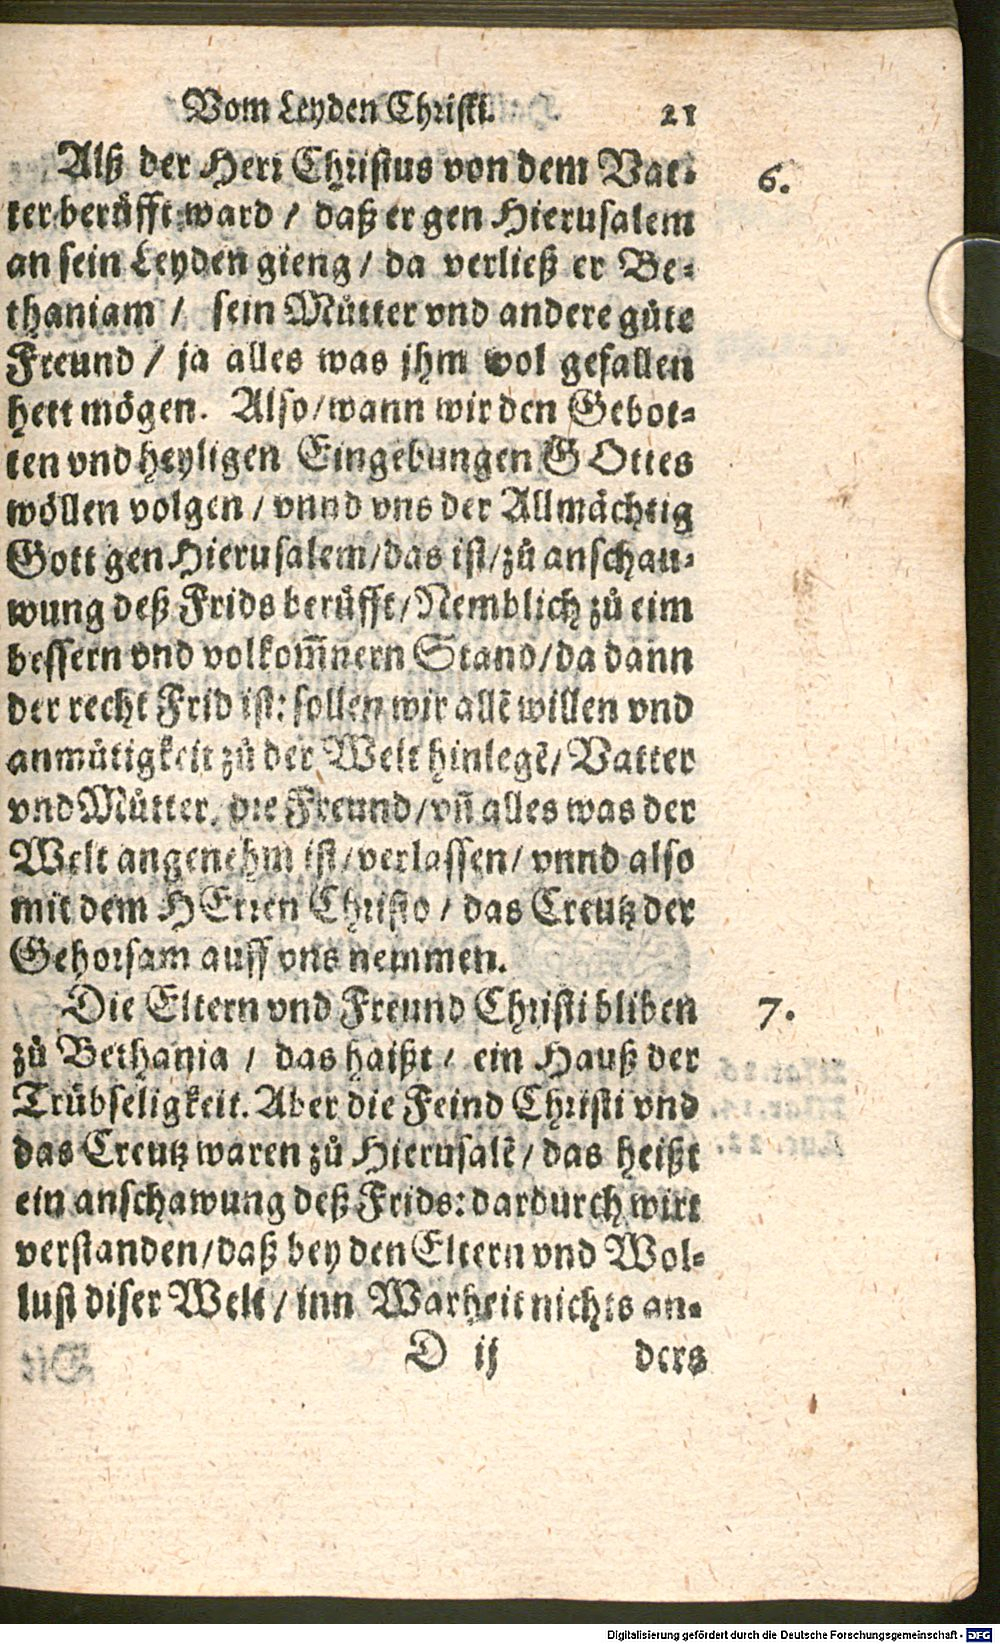 Vom Leyden Christi. 21
Alß der Herr Christus von dem Vat- 6.
ter berůfft ward / daß er gen Hierusalem
an sein Leyden gieng / da verließ er Be-
thaniam / sein Můtter vnd andere gůte
Freund / ja alles was jhm wol gefallen
hett mögen. Also / wann wir den Gebot-
ten vnd heyligen Eingebungen GOttes
wöllen volgen / vnnd vns der Allmächtig
Gott gen Hierusalem / das ist / zů anschau-
wung deß Frids berůfft / Nemblich zů eim
bessern vnd volkom̃nern Stand / da dann
der recht Frid ist: sollen wir allẽ willen vnd
anmůtigkeit zů der Welt hinlegẽ / Vatter
vnd Můtter, die Freund / vñ alles was der
Welt angenehm ist / verlassen / vnnd also
mit dem HErren Christo / das Creutz der
Gehorsam auff vns nemmen.
Die Eltern vnd Freund Christi bliben 7.
zů Bethania / das haißt / ein Hauß der
Trübseligkeit. Aber die Feind Christi vnd
das Creutz waren zů Hierusalẽ / das heißt
ein anschawung deß Frids: dardurch wirt
verstanden / daß bey den Eltern vnd Wol-
lust diser Welt / inn Warheit nichts an-
D ij ders
Digitalisierung gefördert durch die Deutsche Forschungsgemeinschaft - DFG